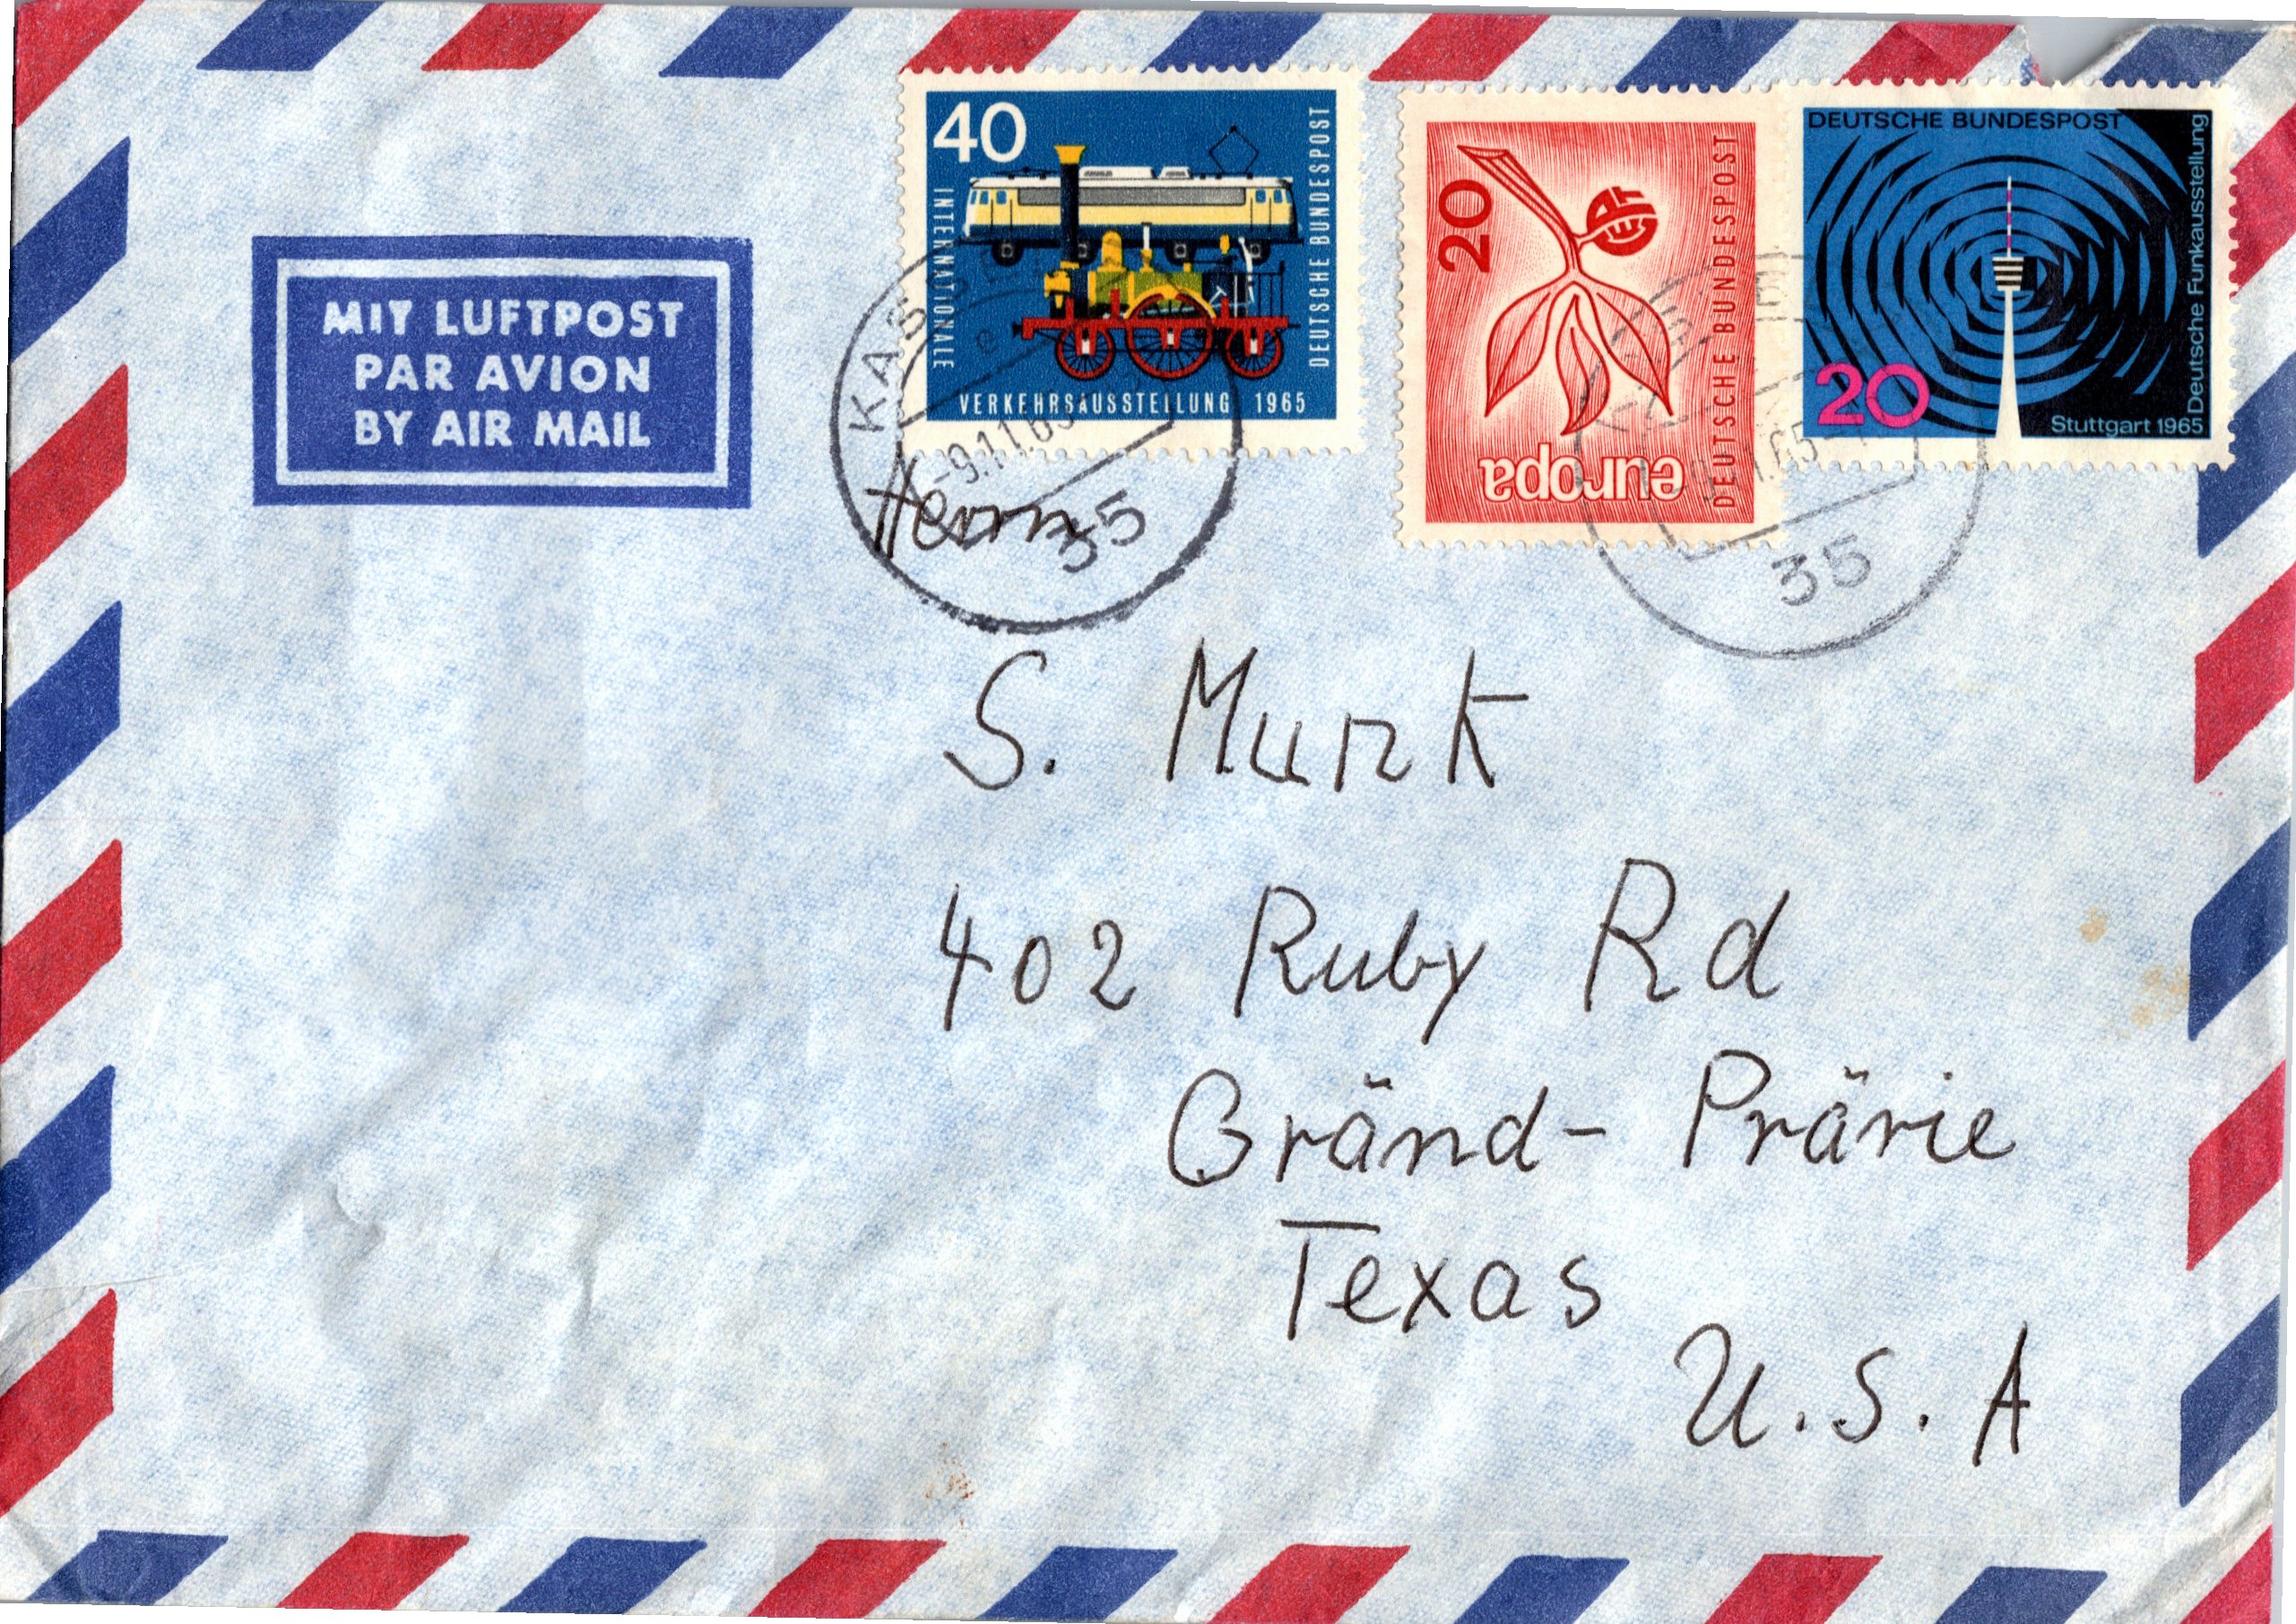 40
INTERNATIONALE
VERKEHRSAUSSTELLUNG 1965
DEUTSCHE BUNDESPOST
20
CEPT
europa
DEUTSCHE BUNDESPOST
DEUTSCHE BUNDESPOST
20
Stuttgart 1965
Deutsche Funkausstellung
MIT LUFTPOST
PAR AVION
BY AIR MAIL
KASSEL
e
-9.11.65
35
35
Herrn
S. Munk
402 Ruby Rd
Gränd-Prärie
Texas
U.S.A